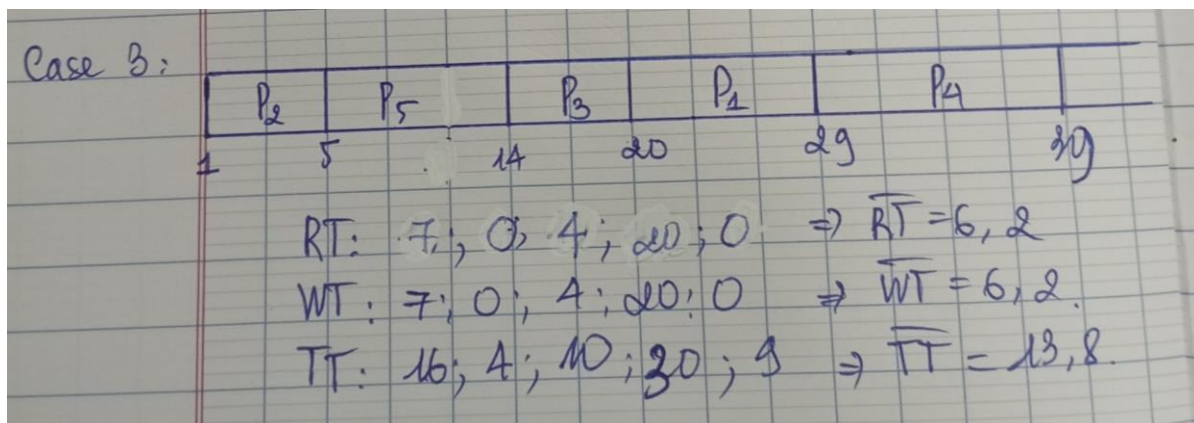 Case 3:
P2 P5 P3 P1 P4
1 5 14 20 29 39
RT: 7; 0; 4; 20; 0 ⇒ RT = 6,2
WT: 7; 0; 4; 20; 0 ⇒ WT = 6,2.
TT: 16; 4; 10; 30; 9 ⇒ TT = 13,8.